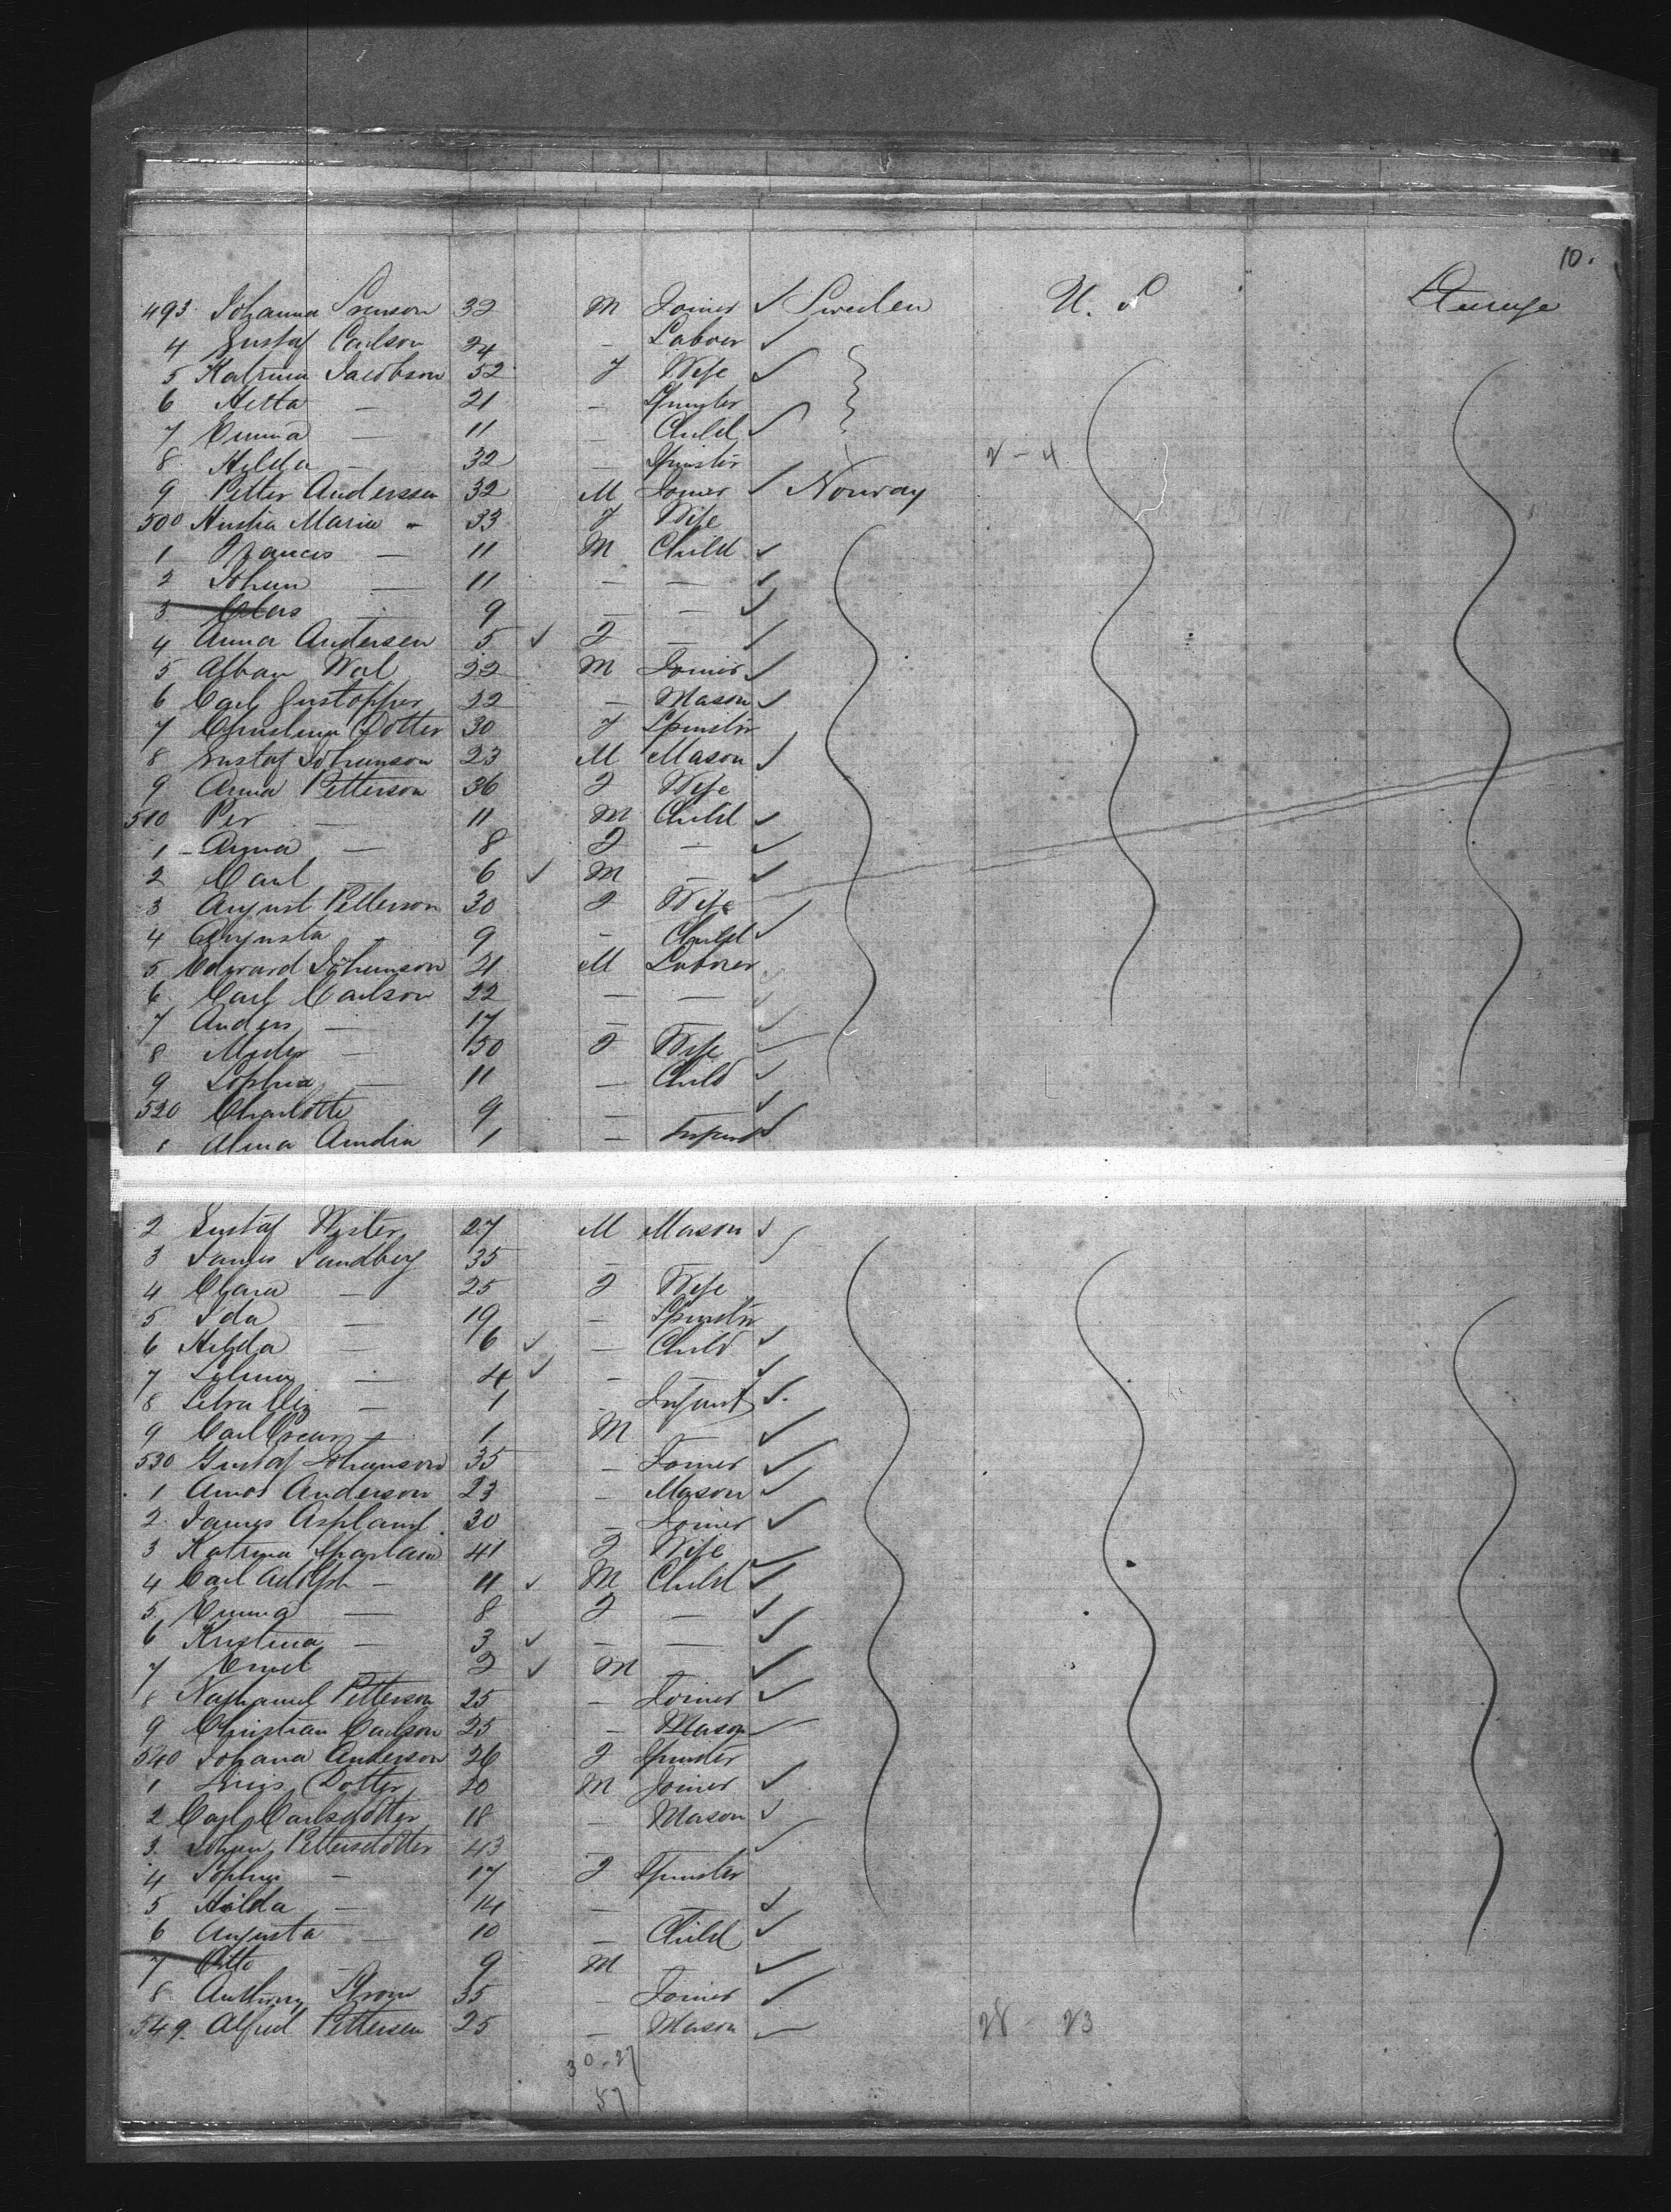 10.
493 Johanna Svenson 32 M Joiner ✓ Sweden U. S Steerage
4 Gustaf Carlson 24 — Laborer ✓
5 Katrina Jacobson 52 F Wife ✓
6 Hetta — 21 — Spinster
7 Emma — 11 — Child ✓
8 Hilda — 32 — Spinster 2-4
9 Petter Anderssen 32 M Joiner ✓ Norway
500 Maria — 33 F Wife
1 Frances — 11 M Child ✓
2 Johan — 11 — — ✓
3 Clas — 9 — — ✓
4 Anna Andersen 5 ✓ F — ✓
5 Alban Wal 22 M Joiner ✓
6 Carl 22 — Mason ✓
7 Christina Dotter 30 F Spinster
8 Gustaf Johanson 23 M Mason ✓
9 Anna Petterson 36 F Wife
510 Per — 11 M Child ✓
1 Anna — 8 F — ✓
2 Carl — 6 ✓ M — ✓
3 August Petterson 30 F Wife
4 Augusta — 9 — Child ✓
5 Edward Johanson 21 M Laborer
6 Carl Carlson 22 — — ✓
7 Anders — 17 — — ✓
8 — 50 F Wife
9 Sophia — 11 — Child ✓
520 Charlotte 9 — ✓
1 Alma 1 — Infant ✓
2 Gustaf Wester 27 M Mason ✓
3 James Sandberg 35 —
4 Clara — 25 F Wife
5 Ida — 19 — Spinster
6 Hilda — 6 ✓ — Child ✓
7 Selma — 4 ✓ — — ✓
8 — 1 Infant ✓
9 Carl Oscar — 1 M — ✓
530 Gustaf Johanson 35 — Joiner ✓
1 Amos Anderson 23 — Mason ✓
2 James Aspland 30 — Joiner ✓
3 Katrina 41 F Wife ✓
4 Carl Adolph — 11 ✓ M Child ✓
5 Emma — 8 F — ✓
6 Kristina — 3 ✓ — — ✓
7 Emil 2 ✓ M ✓
8 Nathaniel Petterson 25 — Joiner ✓
9 Christian Carlson 25 — Mason
540 Johana Anderson 26 F Spinster
1 Dotter 20 M Joiner ✓
2 Carl Carlsdotter 18 — Mason ✓
3 Johan Pettersdotter 43 ✓
4 Sophia — 17 F Spinster
5 Hilda — 14 — — ✓
6 Augusta — 10 — Child ✓
7 Otto — 9 M — ✓
8 Anthony Strom 35 — Joiner ✓
549 Alfred Pettersen 25 — Mason 28 23
30-27
57